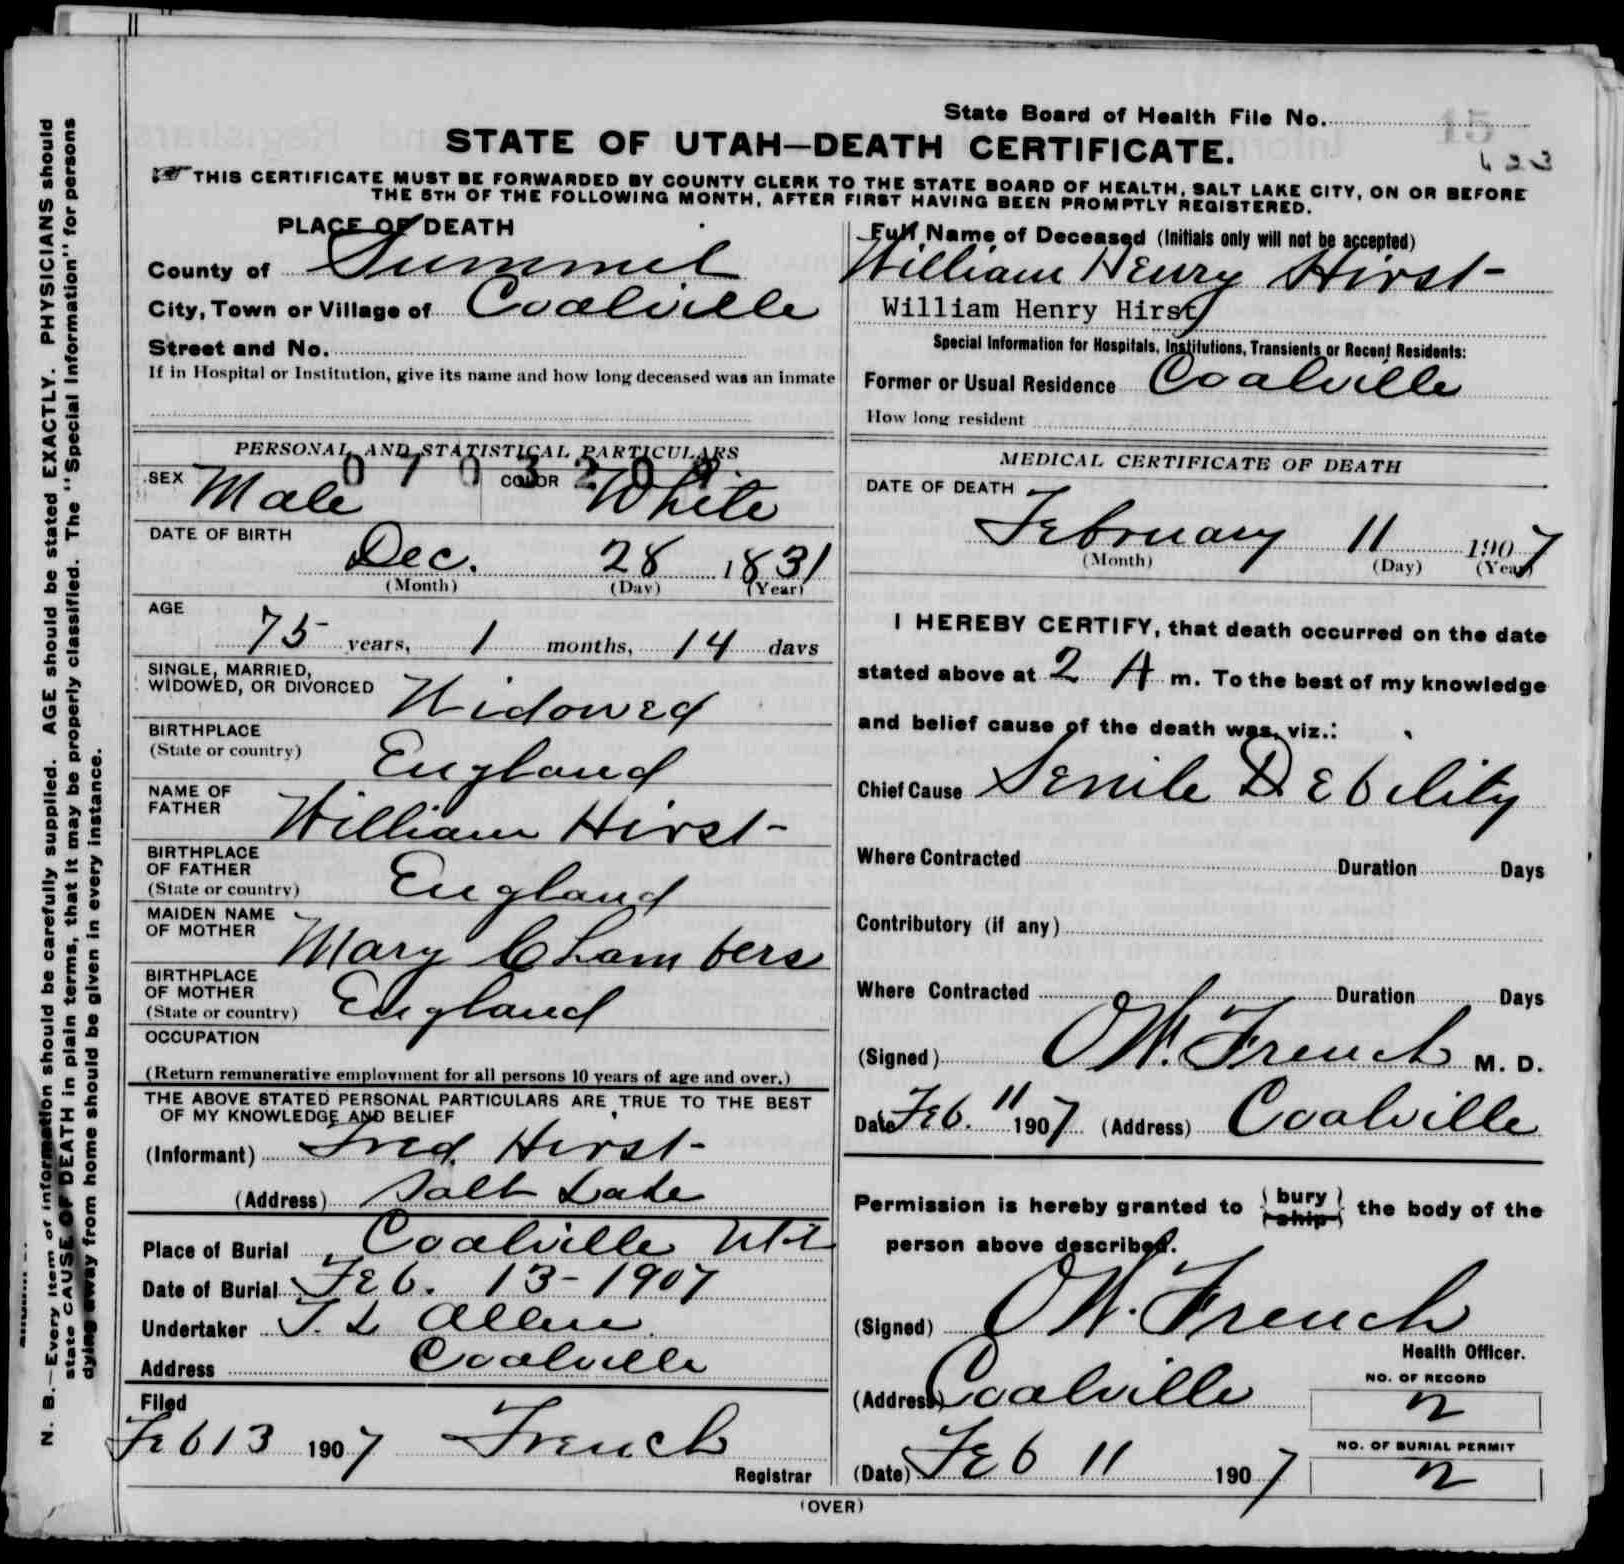 N. B.—Every item of information should be carefully supplied. AGE should be stated EXACTLY. PHYSICIANS should
state CAUSE OF DEATH in plain terms, that it may be properly classified. The "Special Information" for persons
dying away from home should be given in every instance.
State Board of Health File No.
15
STATE OF UTAH—DEATH CERTIFICATE.
623
THIS CERTIFICATE MUST BE FORWARDED BY COUNTY CLERK TO THE STATE BOARD OF HEALTH, SALT LAKE CITY, ON OR BEFORE
THE 5TH OF THE FOLLOWING MONTH, AFTER FIRST HAVING BEEN PROMPTLY REGISTERED.
PLACE OF DEATH
County of Summit
City, Town or Village of Coalville
Street and No.
If in Hospital or Institution, give its name and how long deceased was an inmate
Full Name of Deceased (Initials only will not be accepted)
William Henry Hirst
William Henry Hirst
Special Information for Hospitals, Institutions, Transients or Recent Residents:
Former or Usual Residence Coalville
How long resident
PERSONAL AND STATISTICAL PARTICULARS
SEX Male COLOR White
DATE OF BIRTH
Dec. 28 1831
(Month) (Day) (Year)
AGE
75 years, 1 months, 14 days
SINGLE, MARRIED,
WIDOWED, OR DIVORCED Widowed
BIRTHPLACE
(State or country) England
NAME OF
FATHER William Hirst
BIRTHPLACE
OF FATHER
(State or country) England
MAIDEN NAME
OF MOTHER Mary Chambers
BIRTHPLACE
OF MOTHER
(State or country) England
OCCUPATION
(Return remunerative employment for all persons 10 years of age and over.)
THE ABOVE STATED PERSONAL PARTICULARS ARE TRUE TO THE BEST
OF MY KNOWLEDGE AND BELIEF
(Informant) Fred Hirst
(Address) Salt Lake
Place of Burial Coalville Utah
Date of Burial Feb. 13-1907
Undertaker T. L Allen
Address Coalville
Filed
Feb 13 1907 French
Registrar
MEDICAL CERTIFICATE OF DEATH
DATE OF DEATH
February 11 1907
(Month) (Day) (Year)
I HEREBY CERTIFY, that death occurred on the date
stated above at 2 A m. To the best of my knowledge
and belief cause of the death was, viz.:
Chief Cause Senile Debility
Where Contracted Duration Days
Contributory (if any)
Where Contracted Duration Days
(Signed) O W. French M. D.
Date Feb. 11 1907 (Address) Coalville
Permission is hereby granted to bury ship the body of the
person above described.
(Signed) O W. French
Health Officer.
(Address) Coalville
NO. OF RECORD
2
NO. OF BURIAL PERMIT
2
(Date) Feb 11 1907
(OVER)